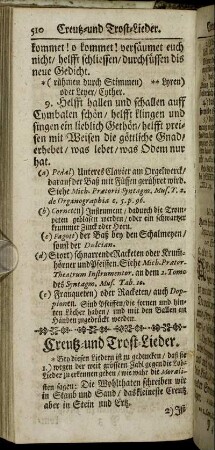 510 Creutz-und Trost-Lieder.
kommet! o kommet! versäumet euch
nicht/ helfft schliessen/ durchsüssen dis
neue Gedicht.
* ( rühmen durch Stimmen) ** Lyren)
oder Leyer/ Cyther.
9. Helfft hallen und schallen auff
Cymbalen schön/ helfft klingen und
singen ein lieblich Gethön/ helfft prei-
sen mit Weisen die göttliche Gnad/
erhebet/ was lebet/ was Odem nur
hat.
(a) Pedal) Unteres Clavier am Orgelwerck/
darauf der Baß mit Füssen gerühret wird.
Siehe Mich. Prætorii Syntagm. Mus. T. 2.
de Organographia c. 5. p. 96.
(b) Corneten) Instrument/ dadurch die Trom-
peten geblasen werden/ oder ein schwartzer
krummer Zinck oder Horn.
(c) Fagot) der Baß bey den Schalmeyen/
sonst der Dulcian.
(d) Stort) schnarrende Racketen oder Krum-
hörner und Pfeiffen. Siehe Mich. Præter.
Theatrum Instrumentor. an dem 2. Tomo
des Syntagm. Mus. Tab. 10.
(e) Ranqueten) oder Racketen/ auch Dop-
pionen. Sind Pfeiffen/ die fornen und hin-
ten Löcher haben/ und mit den Ballen an
Händen zugedrückt werden.
Creutz-und Trost-Lieder.
* Bey diesen Liedern ist zu gedencken/ daß sie
1.) wegen der weit grossern Zahl gegen die Lob-
Lieder zu erkennen geben/ wie wahr die Morali-
sten sagen: Die Wohlthaten schreiben wir
in Staub und Sand/ das kleineste Creutz
aber in Stein und Ertz.
2) Ist